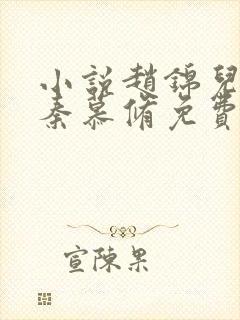 小說趙錦兒
秦慕脩免費
宣陳果